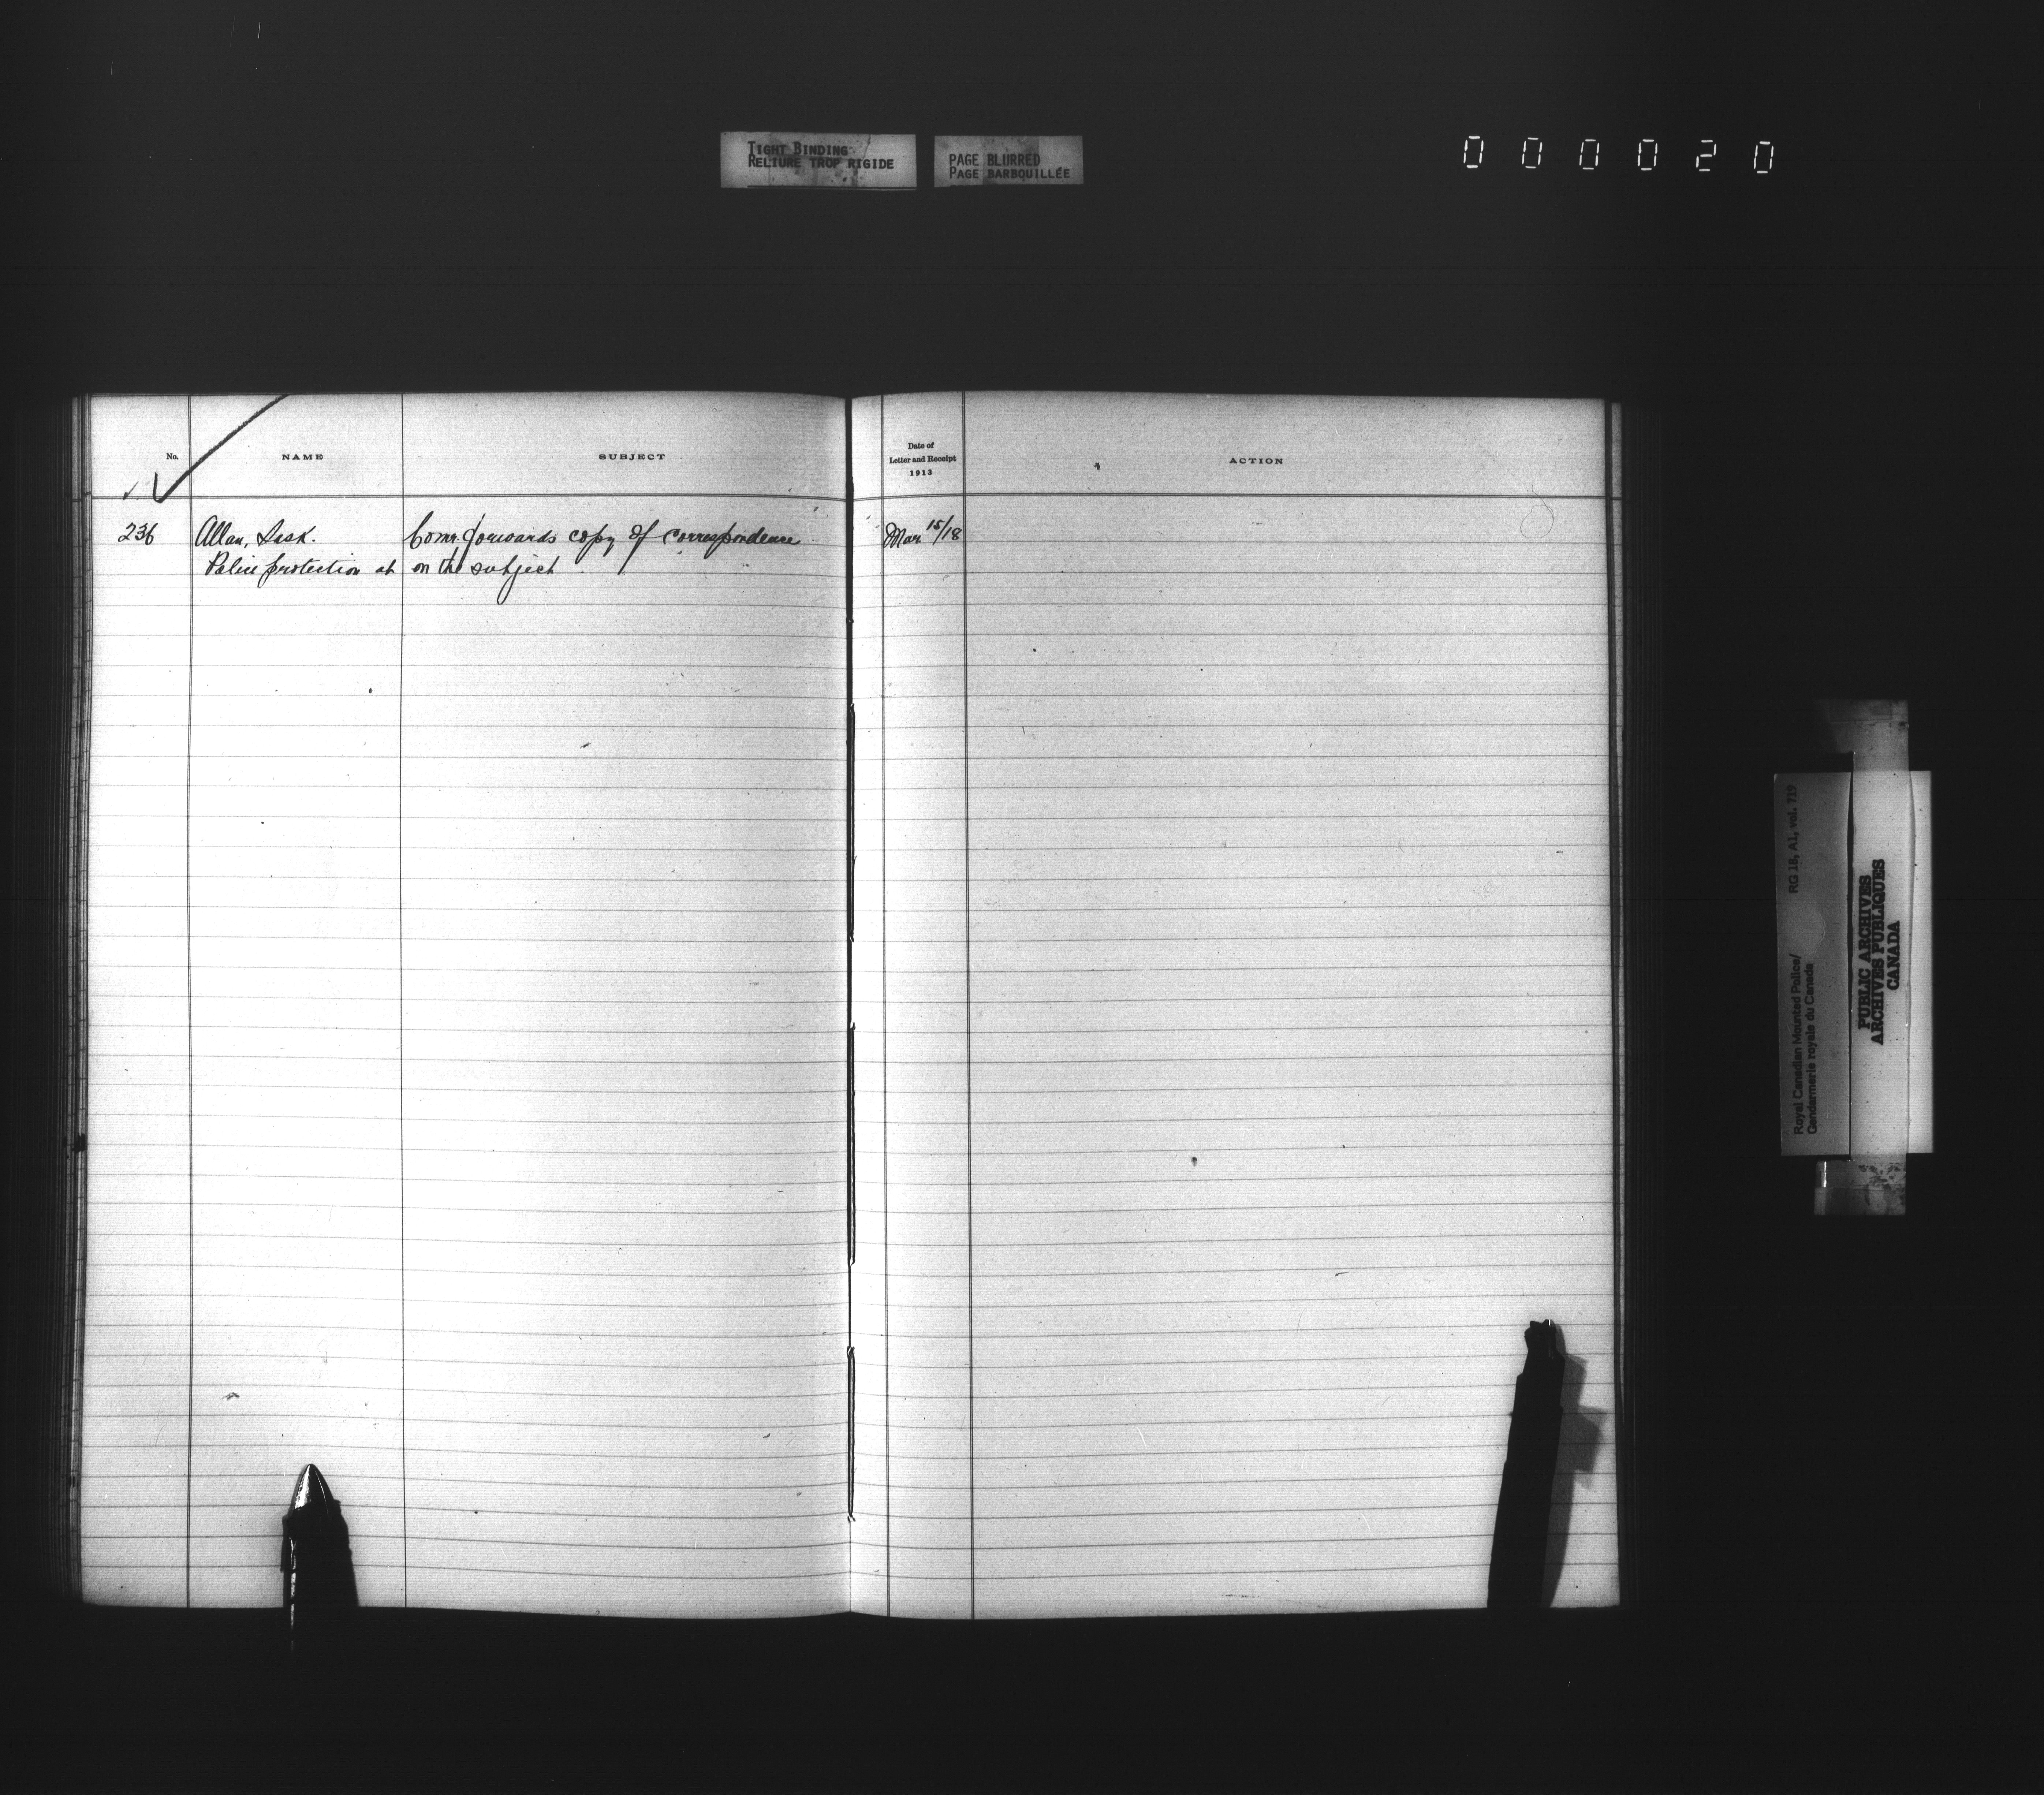 TIGHT BINDING
RELIURE TROP RIGIDE
PAGE BLURRED
PAGE BARBOUILLÉE
000020
No.
NAME
SUBJECT
Date of
Letter and Receipt
1913
ACTION
236 Allan, Sask. Comr. forwards copy of correspondence Mar 15/18
Police protection at on the subject
RG 18, A1, vol. 719
Royal Canadian Mounted Police/
Gendarmerie royale du Canada
PUBLIC ARCHIVES
ARCHIVES PUBLIQUES
CANADA